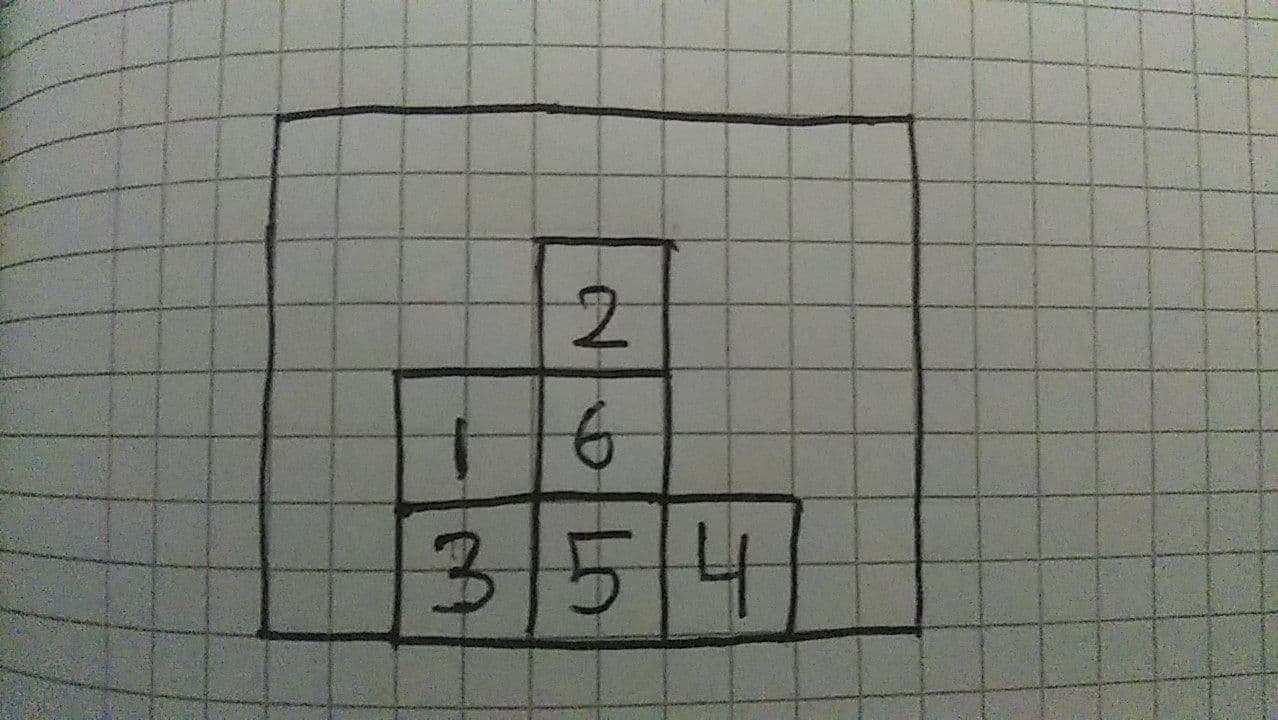 2
1 6
3 5 4